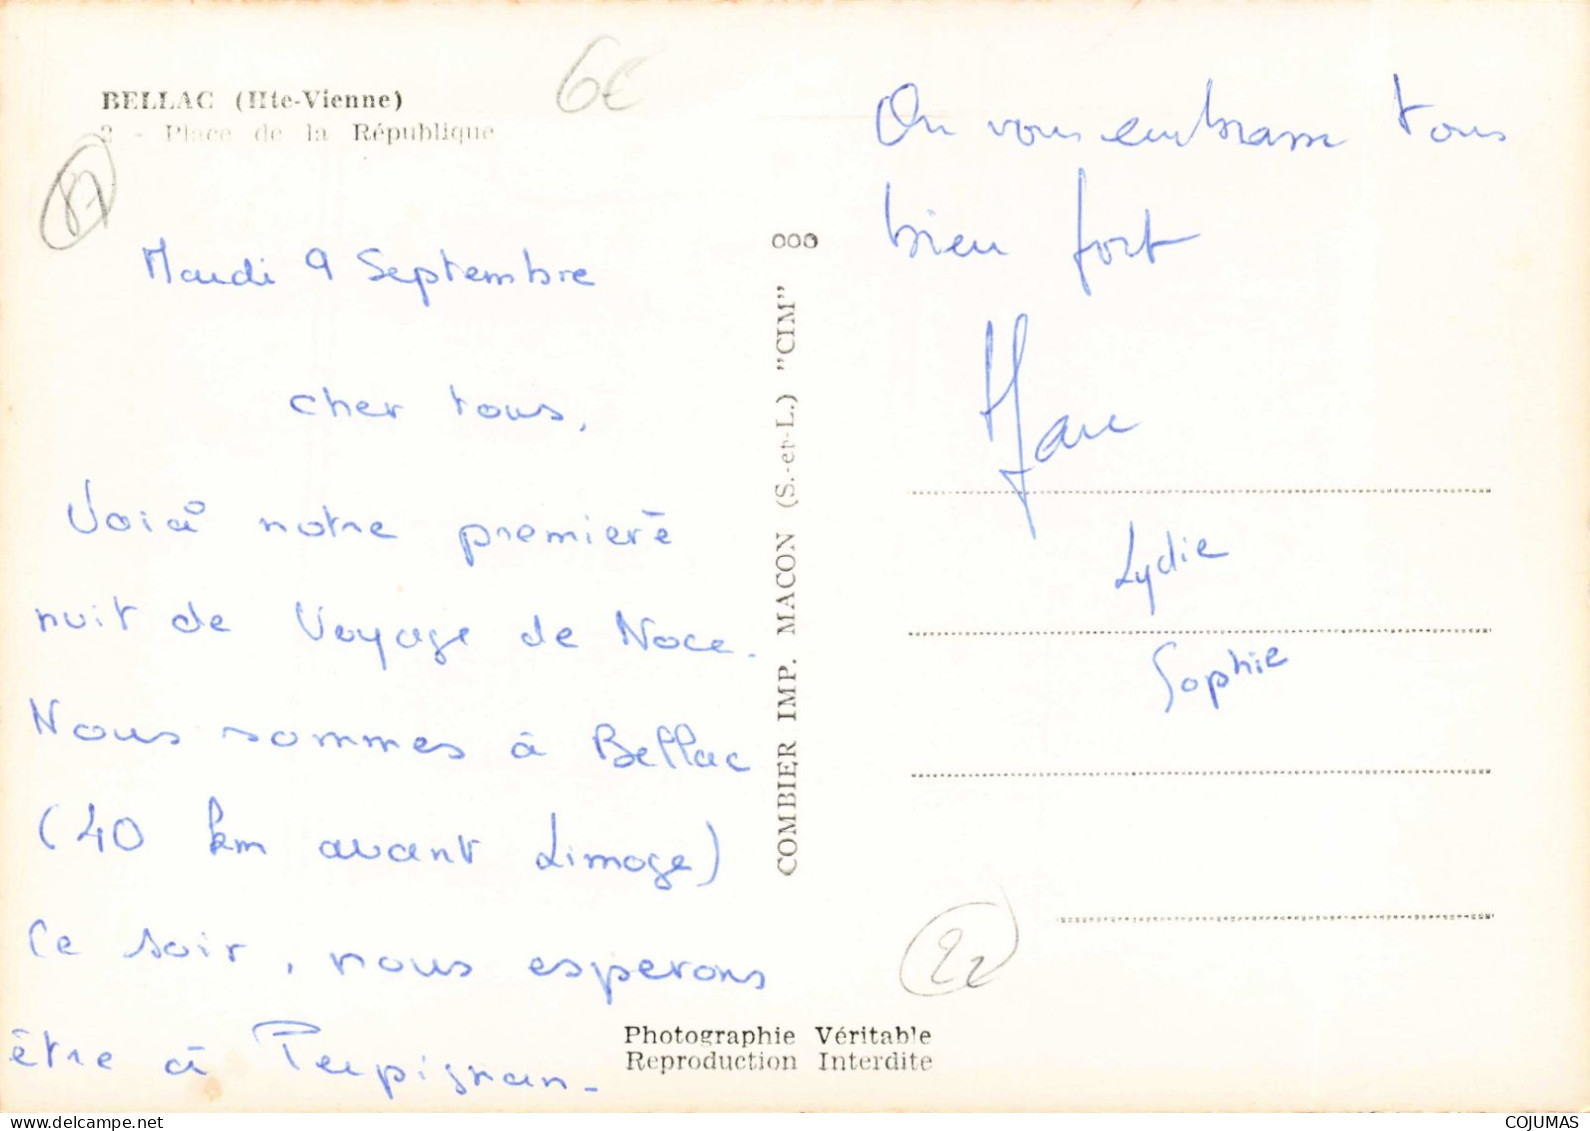 BELLAC (Hte-Vienne)
2 - Place de la République
6€
87
Mardi 9 Septembre
cher tous,
Voià notre premierè
nuit de Voyage de Noce.
Nous sommes à Bellac
(40 km avant Limoge)
Ce soir, nous esperons
être à Perpignan.
COMBIER IMP. MACON (S.-et-L.) "CIM"
On vous embrasse tous
bien fort
Marc
Lydie
Sophie
22
Photographie Véritable
Reproduction Interdite
COJUMAS